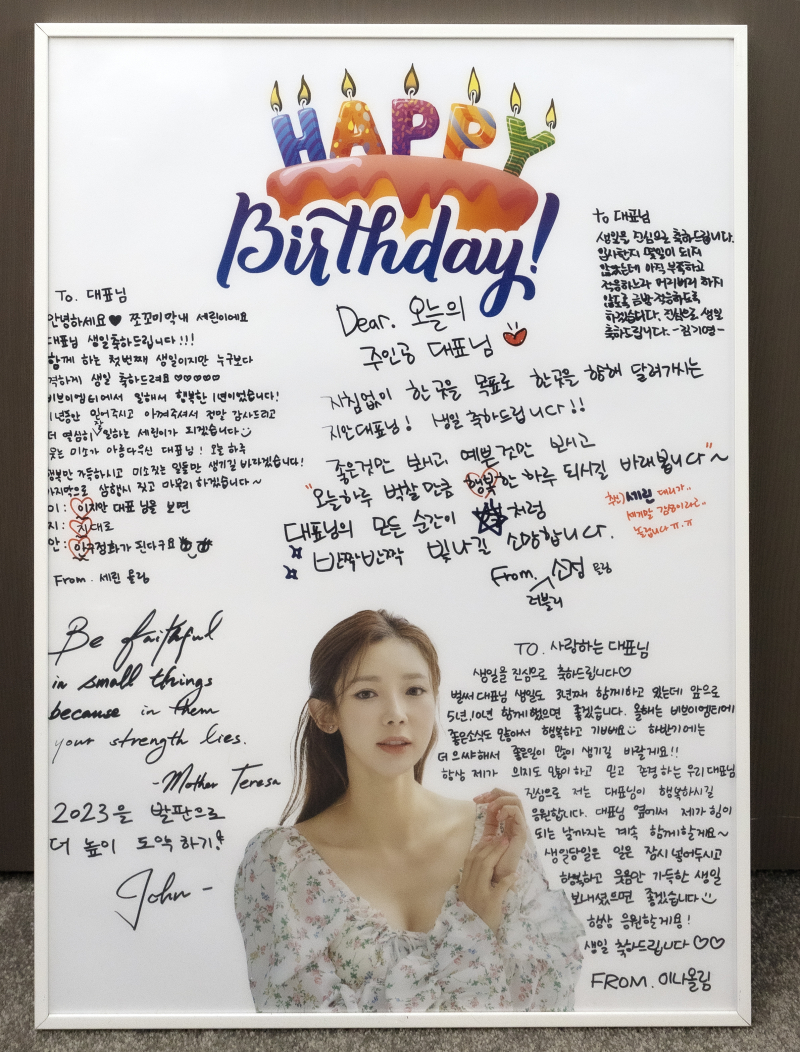 HAPPY
Birthday!
to 대표님
생일을 진심으로 축하드립니다.
입사한지 몇일이 되지
않았는데 아직 부족하고
적응하느라 어리버리 하지
않도록 금방 적응하도록
하겠습니다. 진심으로 생일
축하드립니다. -김기명-
To. 대표님
안녕하세요♥ 쪼꼬미막내 세린이에요
대표님 생일축하드립니다!!!
함께 하는 첫번째 생일이지만 누구보다
격하게 생일 축하드려요 ♡♡♡♡♡
비브이엠티에서 일해서 행복한 1년이었습니다!
1년동안 믿어주시고 아껴주셔서 정말 감사드리고
더 열심히 일하는 세린이가 되겠습니다
웃는 미소가 아름다우신 대표님! 오늘 하루
행복만 가득하시고 미소짓는 일들만 생기길 바라겠습니다!
마지막으로 삼행시 짓고 마무리 하겠습니다~
이 : 이지안 대표님을 보면
지 : 지대로
안 : 안구정화가 된다구요
From. 세린 올림
Dear. 오늘의
주인공 대표님 ♥
지침없이 한 곳을 목표로 한곳을 향해 달려가시는
지안대표님! 생일축하드립니다!!
좋은것만 보시고 예쁜것만 보시고
"오늘하루 벅찰만큼 행복한 하루 되시길 바래봅니다"~
대표님의 모든 순간이 별처럼
반짝반짝 빛나길 소망합니다.
From. 소정 올림
러블리
세린 대리가..
ㅠ.ㅠ
Be faithful
in small things
because in them
your strength lies.
-Mother Teresa
2023을 발판으로
더 높이 도약하기!
John -
TO. 사랑하는 대표님
생일을 진심으로 축하드립니다♡
벌써 대표님 생일도 3년째 함께하고 있는데 앞으로
5년, 10년 함께했으면 좋겠습니다. 올해는 비브이엠티에
좋은소식도 많아서 행복하고 기뻐요 하반기에는
더 으쌰해서 좋은일이 많이 생기길 바랄게요!!
항상 제가 의지도 많이하고 믿고 존경하는 우리대표님
진심으로 저는 대표님이 행복하시길
응원합니다. 대표님 옆에서 제가 힘이
되는 날까지는 계속 함께할게요~
생일당일은 일은 잠시 넣어두시고
행복하고 웃음만 가득한 생일
보내셨으면 좋겠습니다
항상 응원할게용!
생일 축하드립니다 ♡♡
FROM. 이나올림